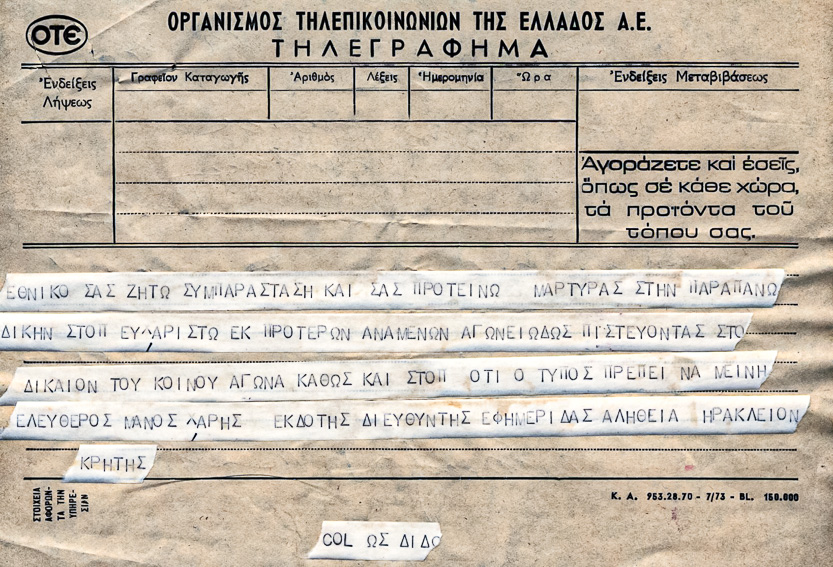 ΟΤΕ
ΟΡΓΑΝΙΣΜΟΣ ΤΗΛΕΠΙΚΟΙΝΩΝΙΩΝ ΤΗΣ ΕΛΛΑΔΟΣ Α.Ε.
ΤΗΛΕΓΡΑΦΗΜΑ
Ἐνδείξεις Λήψεως
Γραφεῖον Καταγωγῆς Ἀριθμὸς Λέξεις Ἡμερομηνία Ὥρα Ἐνδείξεις Μεταβιβάσεως
Ἀγοράζετε καὶ ἐσεῖς,
ὅπως σὲ κάθε χώρα,
τὰ προτόντα τοῦ
τόπου σας.
ΕΘΝΙΚΟ ΣΑΣ ΖΗΤΩ ΣΥΜΠΑΡΑΣΤΑΣΗ ΚΑΙ ΣΑΣ ΠΡΟΤΕΙΝΩ ΜΑΡΤΥΡΑΣ ΣΤΗΝ ΠΑΡΑΠΑΝΩ
ΔΙΚΗΝ ΣΤΟΠ ΕΥΧΑΡΙΣΤΩ ΕΚ ΠΡΟΤΕΡΩΝ ΑΝΑΜΕΝΩΝ ΑΓΩΝΕΙΩΔΩΣ ΠΙΣΤΕΥΟΝΤΑΣ ΣΤΟ
ΔΙΚΑΙΟΝ ΤΟΥ ΚΟΙΝΟΥ ΑΓΩΝΑ ΚΑΘΩΣ ΚΑΙ ΣΤΟΠ ΟΤΙ Ο ΤΥΠΟΣ ΠΡΕΠΕΙ ΝΑ ΜΕΙΝΗ
ΕΛΕΥΘΕΡΟΣ ΜΑΝΟΣ ΧΑΡΗΣ ΕΚΔΟΤΗΣ ΔΙΕΥΘΥΝΤΗΣ ΕΦΗΜΕΡΙΔΑΣ ΑΛΗΘΕΙΑ ΗΡΑΚΛΕΙΟΝ
ΚΡΗΤΗΣ
ΣΤΟΙΧΕΙΑ
ΑΦΟΡΩΝ-
ΤΑ ΤΗΝ
ΥΠΗΡΕ-
ΣΙΑΝ
Κ. Α. 953.28.70 - 7/73 - BL. 150.000
COL ΩΣ ΔΙΔΟ